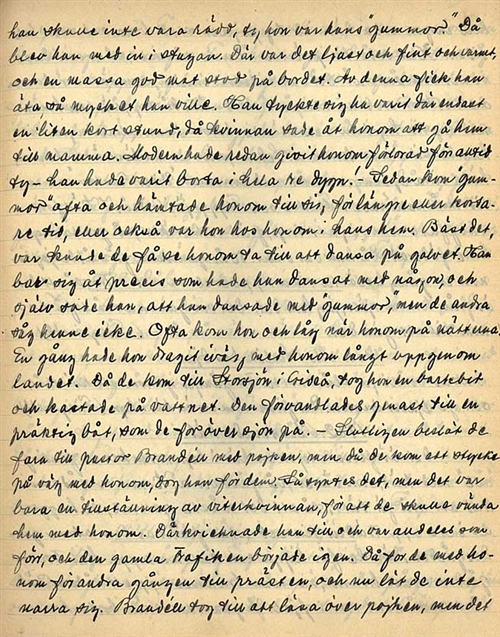 han skulle inte vara rädd, ty hon var hans "gummor." Då
blev han med in i stugan. Där var det ljust och fint och varmt,
och en massa god mat stod på bordet. Av denna fick han
äta så mycket han ville. Han tyckte sig ha varit där endast
en liten kort stund, då kvinnan sade åt honom att gå hem
till mamma. Modern hade redan givit honom förlorad för alltid
ty – han hade varit borta i hela tre dygn! – Sedan kom "gum-
mor" ofta och hämtade honom till sig, för längre eller korta-
re tid, eller också var hon hos honom i hans hem. Bäst det
var kunde de få se honom ta till att dansa på golvet. Han
bar sig åt precis som hade han dansat med någon, och
själv sade han, att han dansade med "gummor," men de andra
såg henne icke. Ofta kom hon och låg när honom på nätterna.
En gång hade hon dragit iväg med honom långt uppgenom
landet. Då de kom till Storsjön i Gideå, tog hon en barkbit
och kastade på vattnet. Den förvandlades genast till en
präktig båt, som de for över sjön på. – Slutligen beslöt de
fara till pastor Brandell med pojken, men då de kom ett stycke
på väg med honom, dog han för dem. Så syntes det, men det var
bara en tillställning av vitterkvinnan, för att de skulle vända
hem med honom. Där kvicknade han till och var alldeles som
förr, och den gamla trafiken började igen. Då for de med ho-
nom för andra gången till prästen, och nu lät de inte
narra sig. Brandell tog till att läsa över pojken, men det